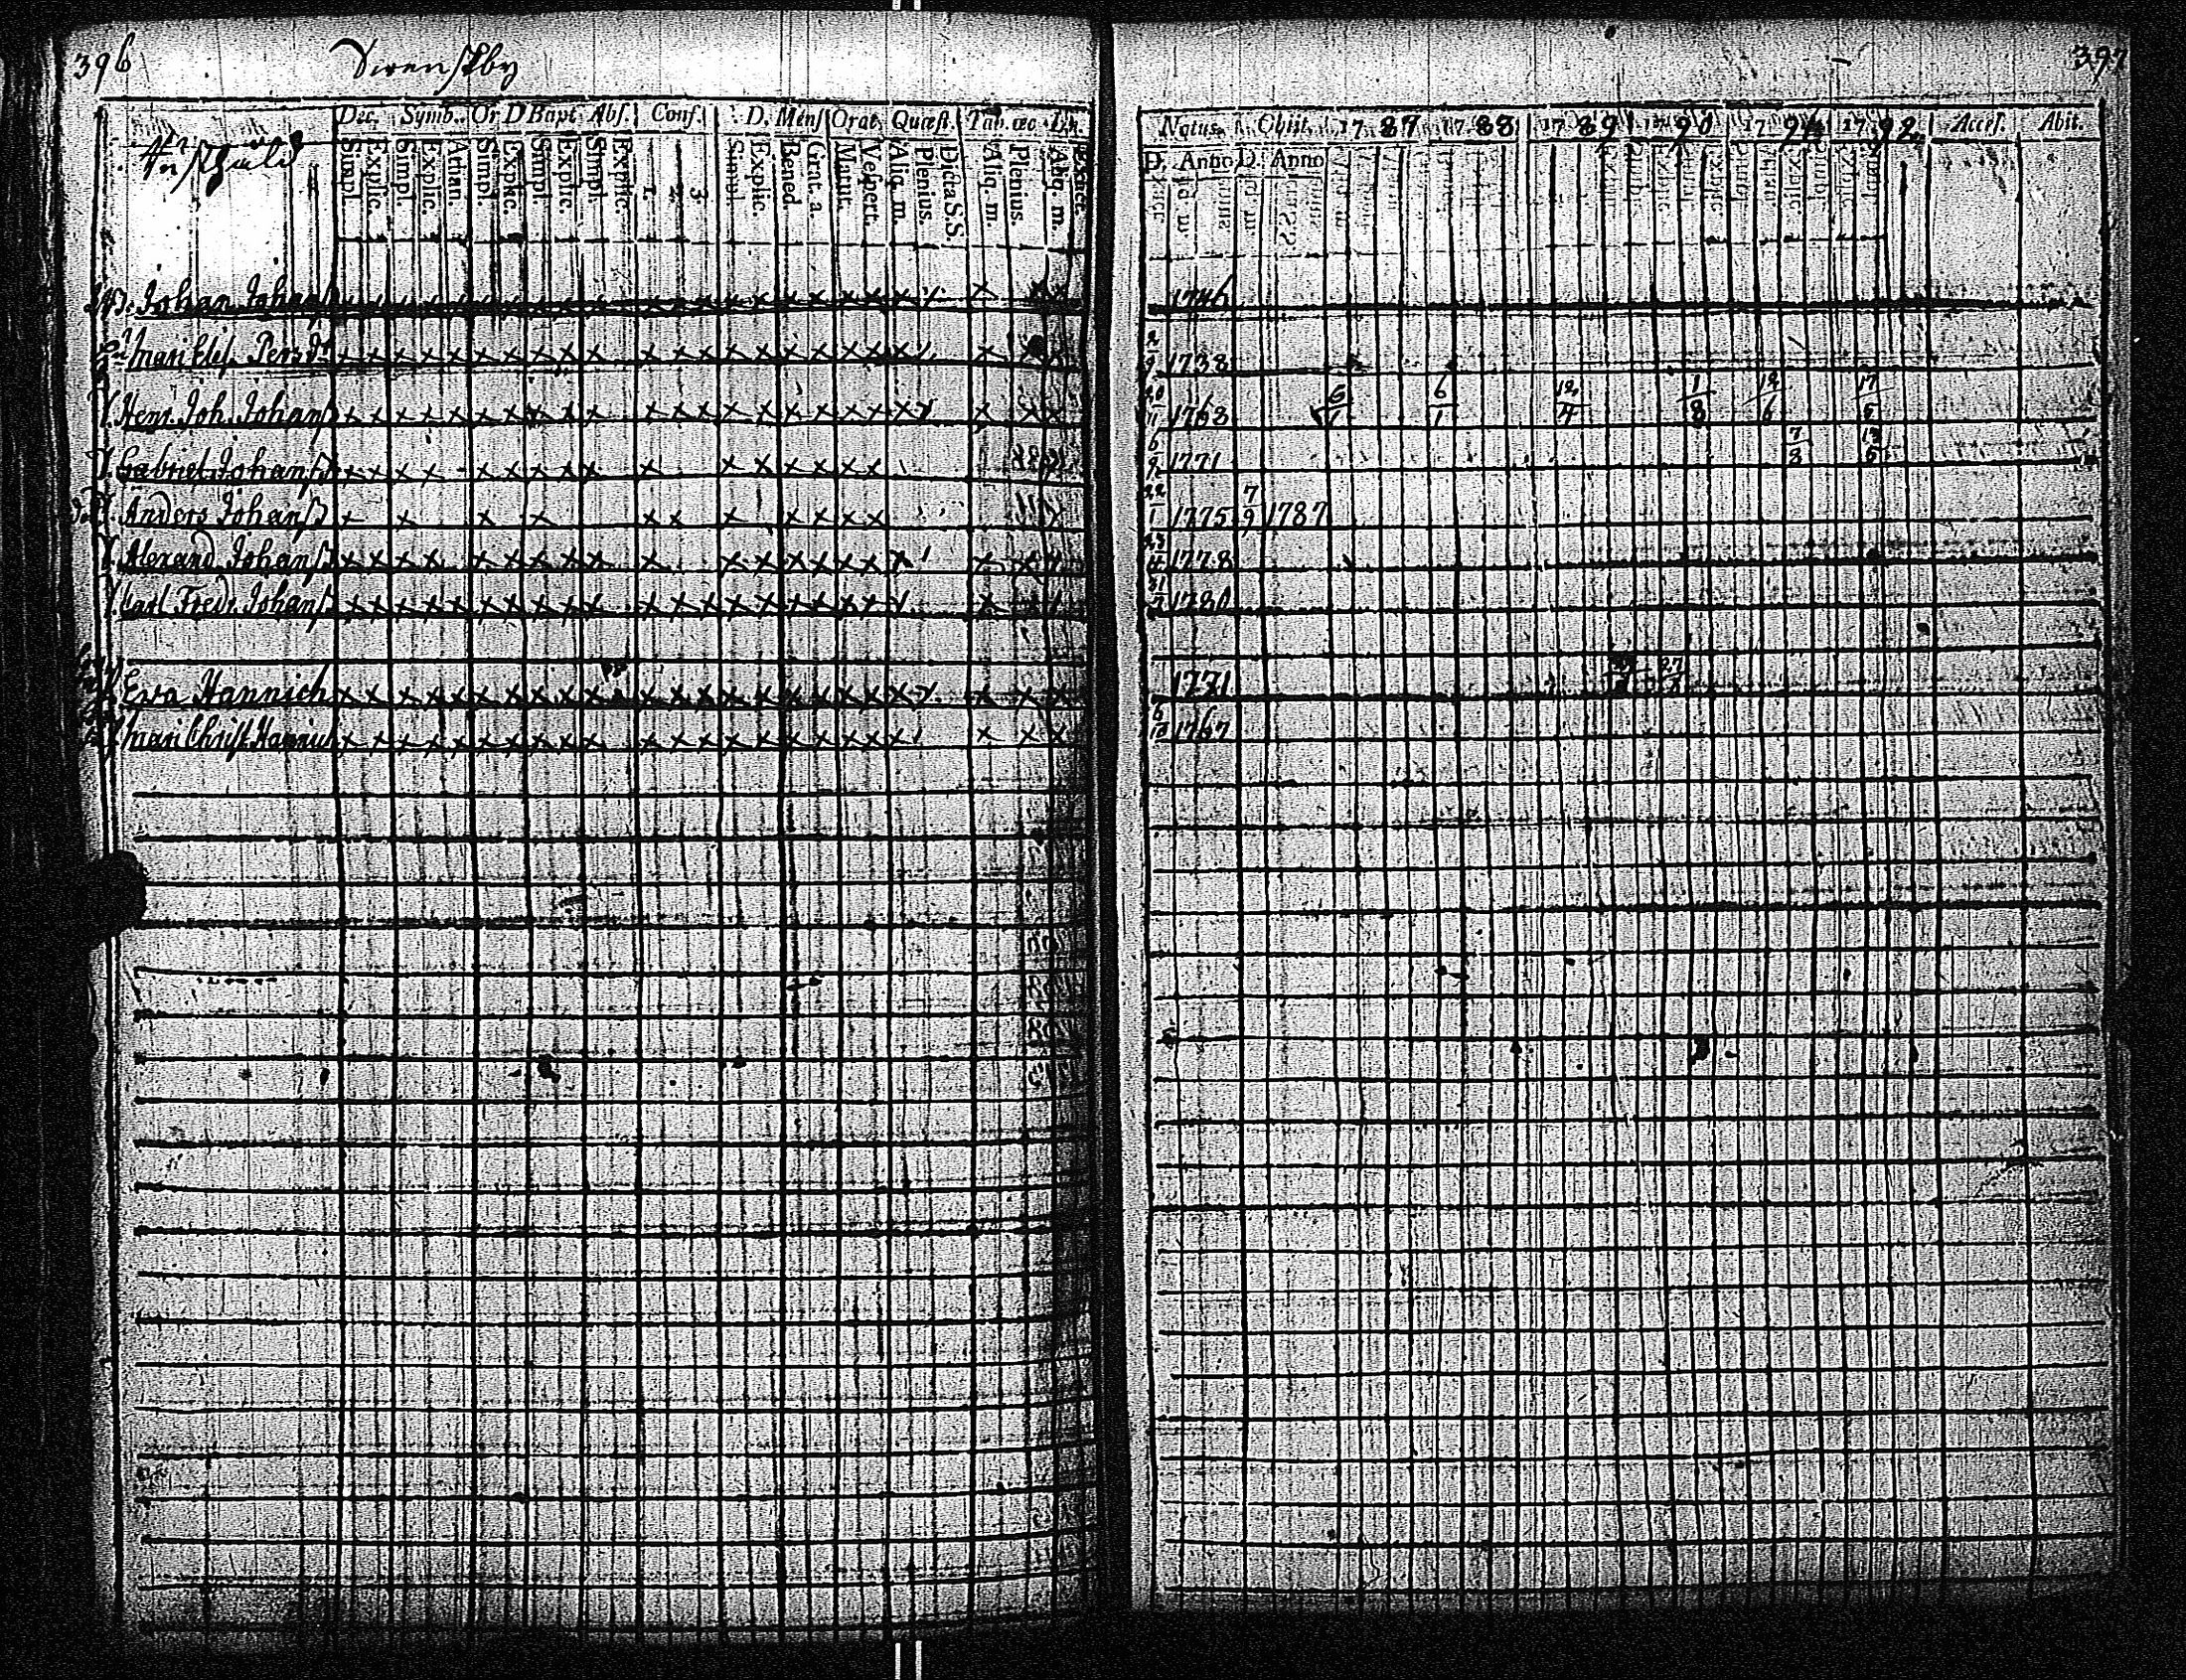 396
Swenskby
397
Dec. Symb. Or D Bapt Abs. Conf. D. Mens Orat. Quæst. Tab. œc
Simpl. Explic. Simpl. Explic. Athan. Simpl. Explic. Simpl. Explic. Simpl. Explic. 1. 2. 3 Simpl. Explic. Bened. Grat. a. Matut. Vespert. Aliq. m. Plenius. Dicta S.S. Aliq. m. Plenius. Aliq. m.
Natus. Obiit. 17 87 17 88 17 89 17 90 17 91 17 92 Access. Abit.
D. Anno D. Anno
Johan Johans 1746
Mari Elis. Persdr 1738
Henr. Joh. Johans 1768 6/1 6/1 12/4 1/8 12/6 17/5
Gabriel Johans 1771 7/8
Anders Johans 1775 7/9 1787
Alexand Johans 1778
Carl Fredr. Johans 1780
Eva Hannich 1771
Mari Christ. Hannich 1767